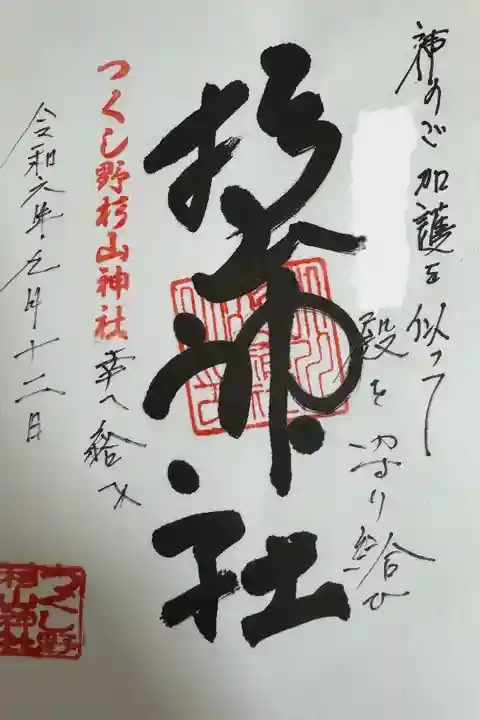 神のご加護を似って
殿を守り給ひ
杉山神社
幸へ給へ
つくし野杉山神社
令和六年元月十二日
つくし野
杉山神社